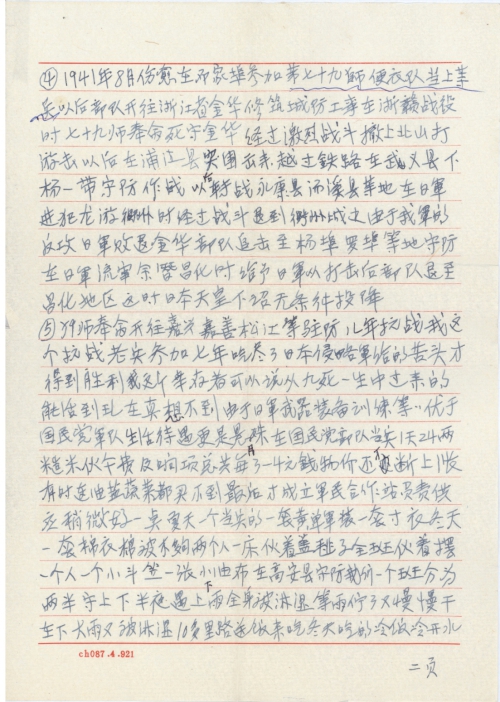 ④1941年8月份我在邓家埠参加第七十九师便衣队当上等
兵以后部队开往浙江省金华修筑城防工事在浙赣战役
时七十九师奉命死守金华经过激烈战斗撤上北山打
游击以后在浦江县突围出来越过铁路在武义县下
杨一带守防作战以后转战永康县汤溪县等地在日軍
进犯龙游衢州时经过战斗退到衢州战史由于我軍的
反攻日軍败退金华部队追击至杨埠罗埠等地守防
在日軍流窜余暨昌化时给予日軍以打击后部队退至
昌化地区这时日本天皇下召无条件投降
⑤79师奉命开往嘉兴嘉善松江等驻防儿年抗战我这
个抗战老兵参加七年吃尽了日本侵略軍给的苦头才
得到胜利我这个幸存者可以说从九死一生中过来的
能活到现在真想不到由于日軍武器装备训练等优于
国民党軍队生活待遇更是悬殊在国民党部队当兵1天24两
糙米伙仒按月发响项兑关每3-4元钱物价还不断上涨
有时连油盐蔬菜都买不到最后才成立軍民合作站负责供
应稍微好一点夏天一个当兵的一套黄单軍装一套寸衣冬天
一套棉衣棉被不夠两个人一床伙着盖毯子全班伙着摆
一个人一个小斗笠一张小由布在高安县守防我们一个班分为
两半守上下半夜遇上下雨全身被淋湿等雨停了又慢慢干
在下大雨又被淋湿10多里路送饭来吃冬天吃的冷饭冷开水
二页
ch087.4.921